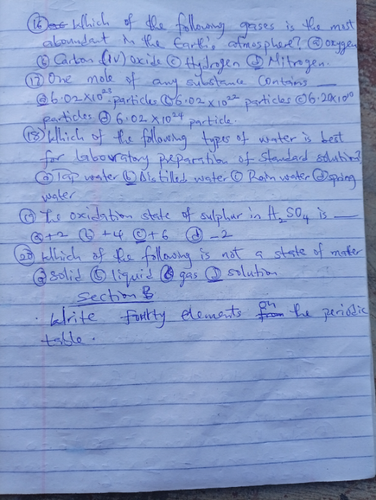 (16) Which of the following gases is the most
abundant in the Earth's atmosphere? (a) oxygen
(b) Carbon (IV) oxide (c) Hydrogen (d) Nitrogen.
(17) One mole of any substance contains __
(a) 6.02×10²³ particles (b) 6.02×10²² particles (c) 6.20×10¹⁰
particles (d) 6.02×10²⁴ particle.
(18) Which of the following types of water is best
for labouratory preparation of standard solution?
(a) Tap water (b) Distilled water (c) Rain water (d) spring
water
(19) The oxidation state of sulphur in H₂SO₄ is __
(a) +2 (b) +4 (c) +6 (d) -2
(20) Which of the following is not a state of matter
(a) solid (b) liquid (c) gas (d) solution
Section B
. Write Fortty elements on the periodic
table.